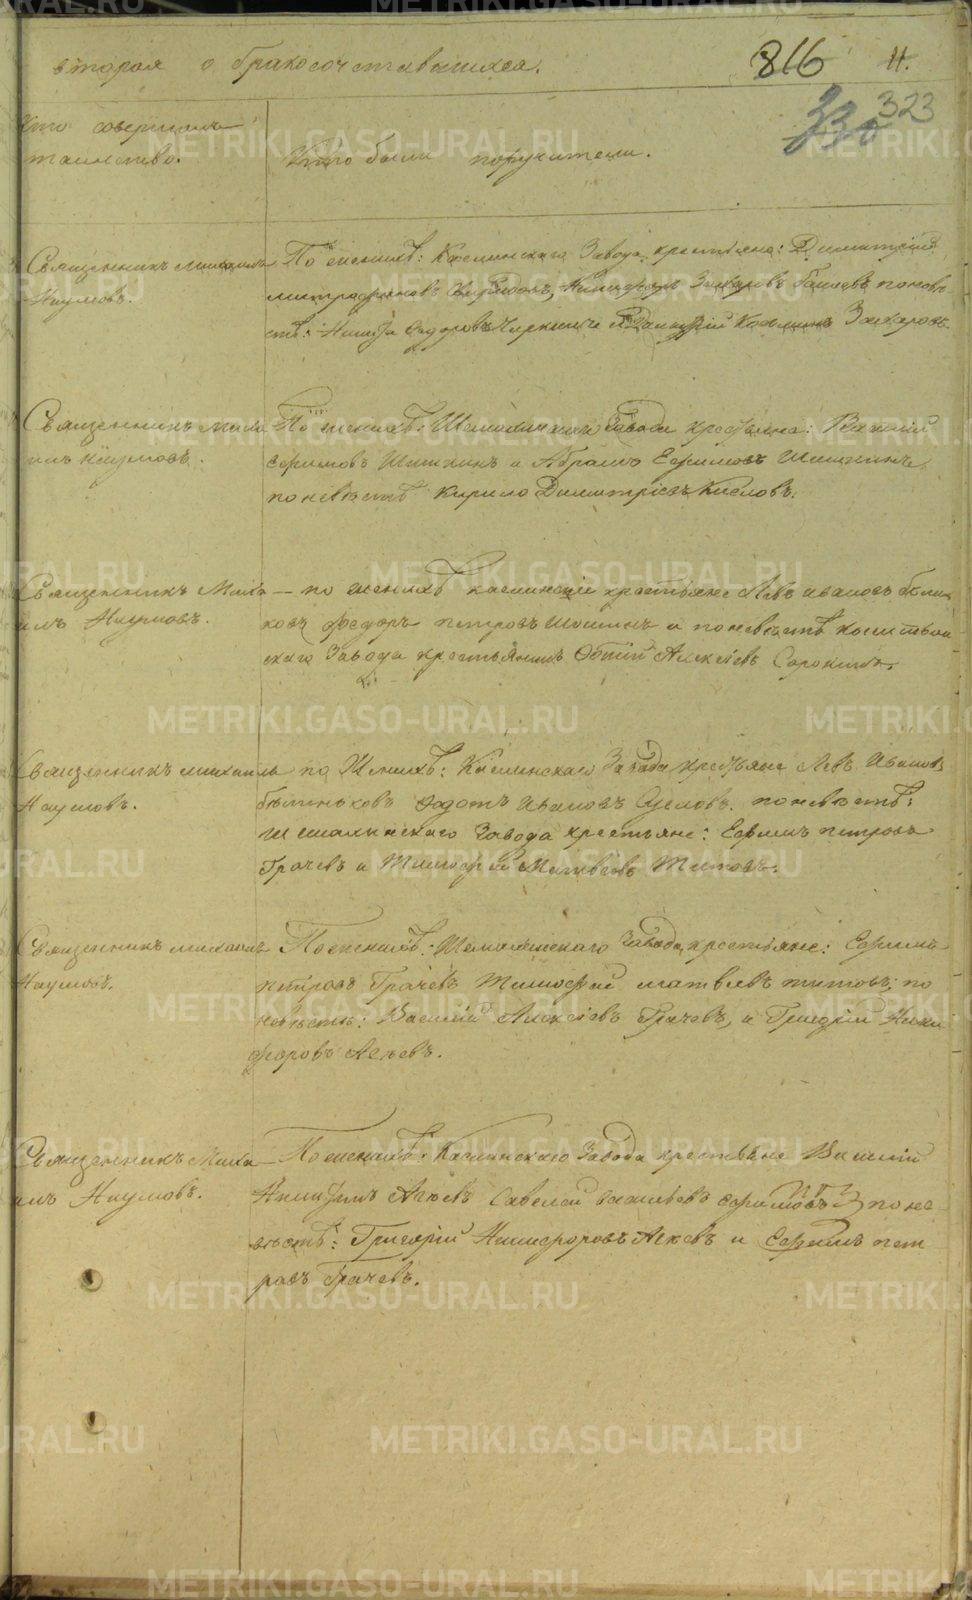 вторая о бракосочетавшихся. 816 11.
323
330
Кто совершалъ
таинство.
Кто были поручители.
Священникъ Михаилъ
Наумовъ.
По женихѣ: Каслинскаго Завода крестьяне: Димитрій
Митрофановъ Никифоръ Захаровъ поневѣ
стѣ: Никита Федоровъ и Захаровъ.
Священникъ Миха
илъ Наумовъ.
По женихѣ: Шемахинскаго Завода крестьяне: Василій
Ефимовъ Шишкинъ и Абрамъ Ефимовъ Шишкинъ,
поневѣстѣ Кирило Димитріевъ Кисловъ.
Священникъ Миха
илъ Наумовъ.
— по женихѣ каслинскіе крестьяне Левъ Ивановъ Блин
ковъ Федоръ Петровъ и поневѣстѣ
скаго Завода крестьянинъ Алексѣевъ Сорокинъ.
Священникъ Михаилъ
Наумовъ.
по Женихѣ: Каслинскаго Завода крестьяне Левъ Ивановъ
Федотъ Ивановъ Сусловъ. поневѣстѣ:
Шемахинскаго Завода крестьяне: Ефимъ Петровъ
Грачевъ и Тимофѣй Матвѣевъ Титовъ.
Священникъ Михаилъ
Наумовъ.
По женихѣ: Шемахинскаго Завода, крестьяне: Ефимъ
Петровъ Грачевъ Тимофѣй Матвѣевъ Титовъ; по
невѣстѣ: Василій Алексѣевъ Грачевъ, и Григорій Ники
форовъ Агѣевъ.
Священникъ Миха
илъ Наумовъ.
По женихѣ: Каслинскаго Завода крестьяне Василій
Агѣевъ Савелій Васильевъ Ефимовъ поне
вѣстѣ: Григорій Никифоровъ Агѣевъ и Ефимъ Пет
ровъ Грачевъ.
METRIKI.GASO-URAL.RU